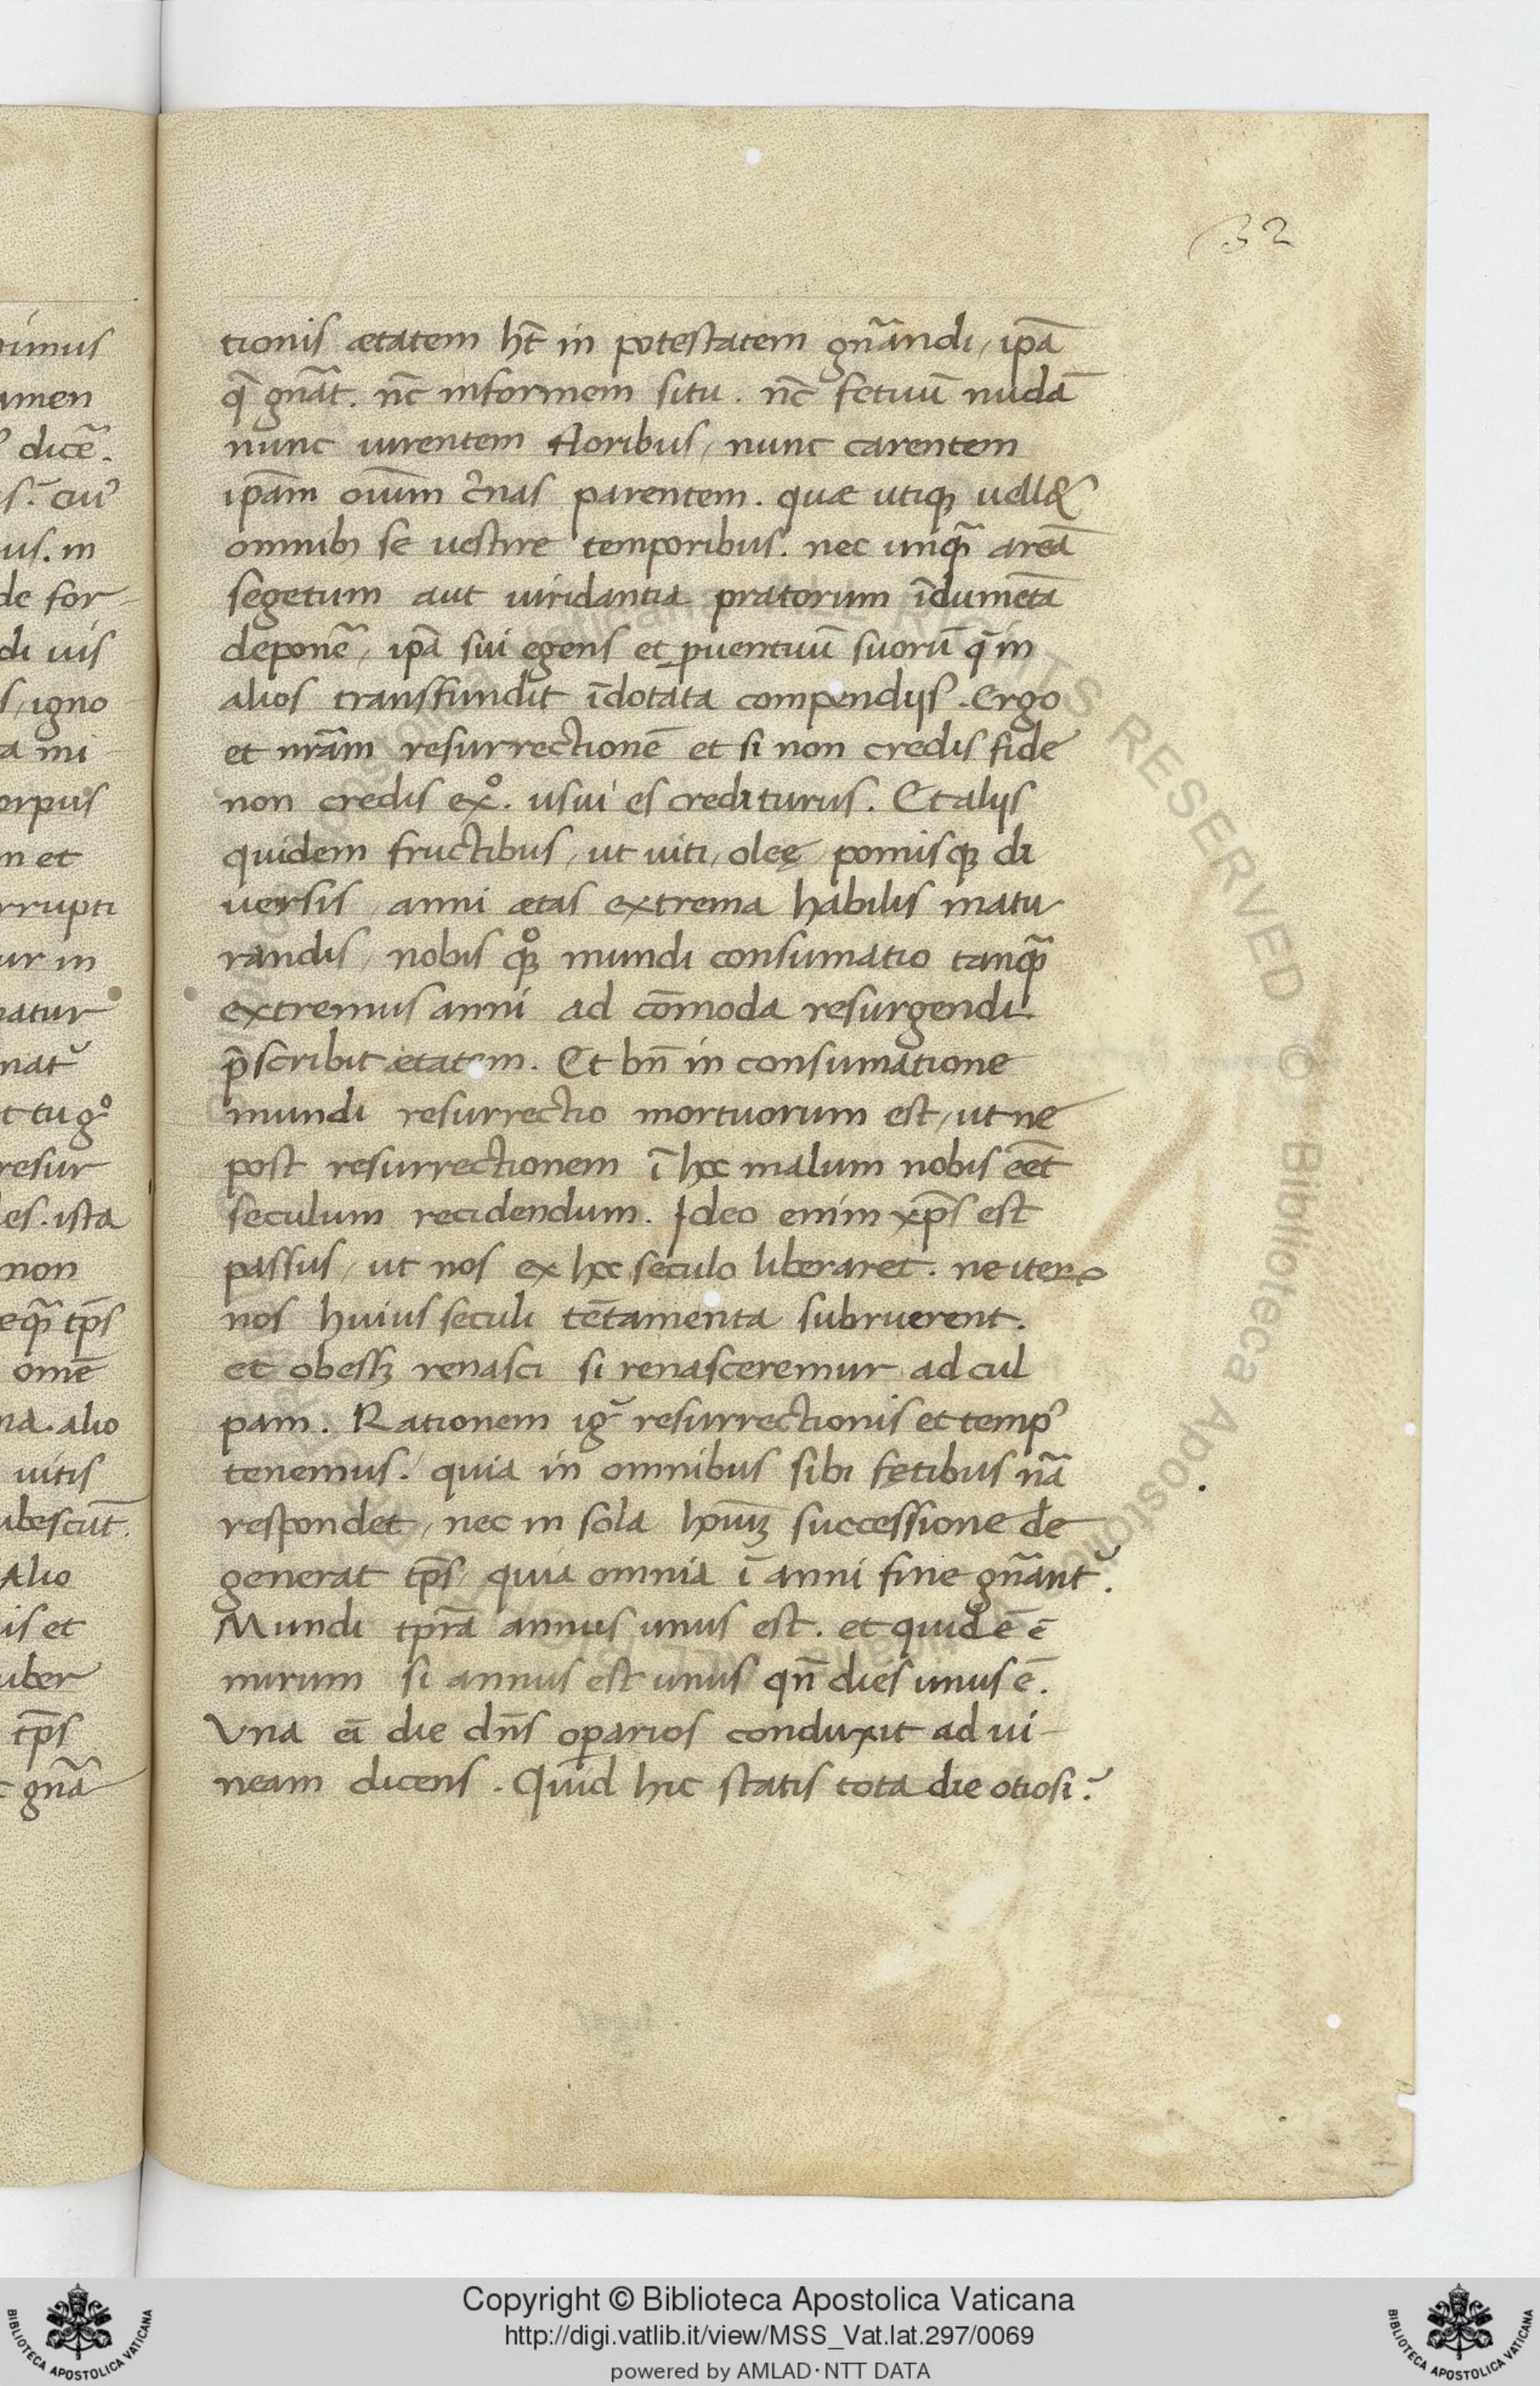 32
tionis ætatem hn̄t in potestatem gn̄andi, ip̄ā
q̄ gn̄at. nc̄ informem situ. nc̄ fetuū nudā
nunc uirentem floribus, nunc carentem
ip̄am ouium c̄nas parentem. quæ utiqꝫ uell&
omnibꝫ se uestire temporibus. nec unqꝫ̄ areā
segetum aut uiridantia pratorum īdumēta
deponē, ip̄a sui egens et ꝓuentuū suorū q̄ in
alios transfundit īdotata compendijs. Ergo
et nr̄am resurrectionē et si non credis fide
non credis exº. usui es crediturus. Et alijs
quidem fructibus, ut uiti, oleę, pomisqꝫ di
uersis, anni ætas extrema habilis matu
randis, nobis qꝫº mundi consumatio tanqꝫ̄
extremus anni ad cōmoda resurgendi
p̄scribit ætatem. Et bn̄ in consumatione
mundi resurrectio mortuorum est, ut ne
post resurrectionem ī hoc malum nobis eēt
seculum recidendum. Ideo enim xp̄s est
passus, ut nos ex hoc seculo liberaret. ne iteꝝ
nos huius seculi tētamenta subruerent.
et obessꝫ renasci si renasceremur ad cul
pam. Rationem ig̃ resurrectionis et temp⁹
tenemus. quia in omnibus sibi fętibus nā
respondet, nec in sola hoīuꝫ successione de
generat tp̄s, quia omnia ī anni fine gn̄ant᷑.
Mundi tp̄ra annus unus est. et quid ē ē
mirum si annus est unus qn̄ dies unus ē.
Vna eī die dn̄s oꝑarios conduxit ad ui
neam dicens. Quid hic statis tota die otiosi?
Copyright © Biblioteca Apostolica Vaticana
http://digi.vatlib.it/view/MSS_Vat.lat.297/0069
powered by AMLAD·NTT DATA
BIBLIOTECA APOSTOLICA VATICANA
BIBLIOTECA APOSTOLICA VATICANA